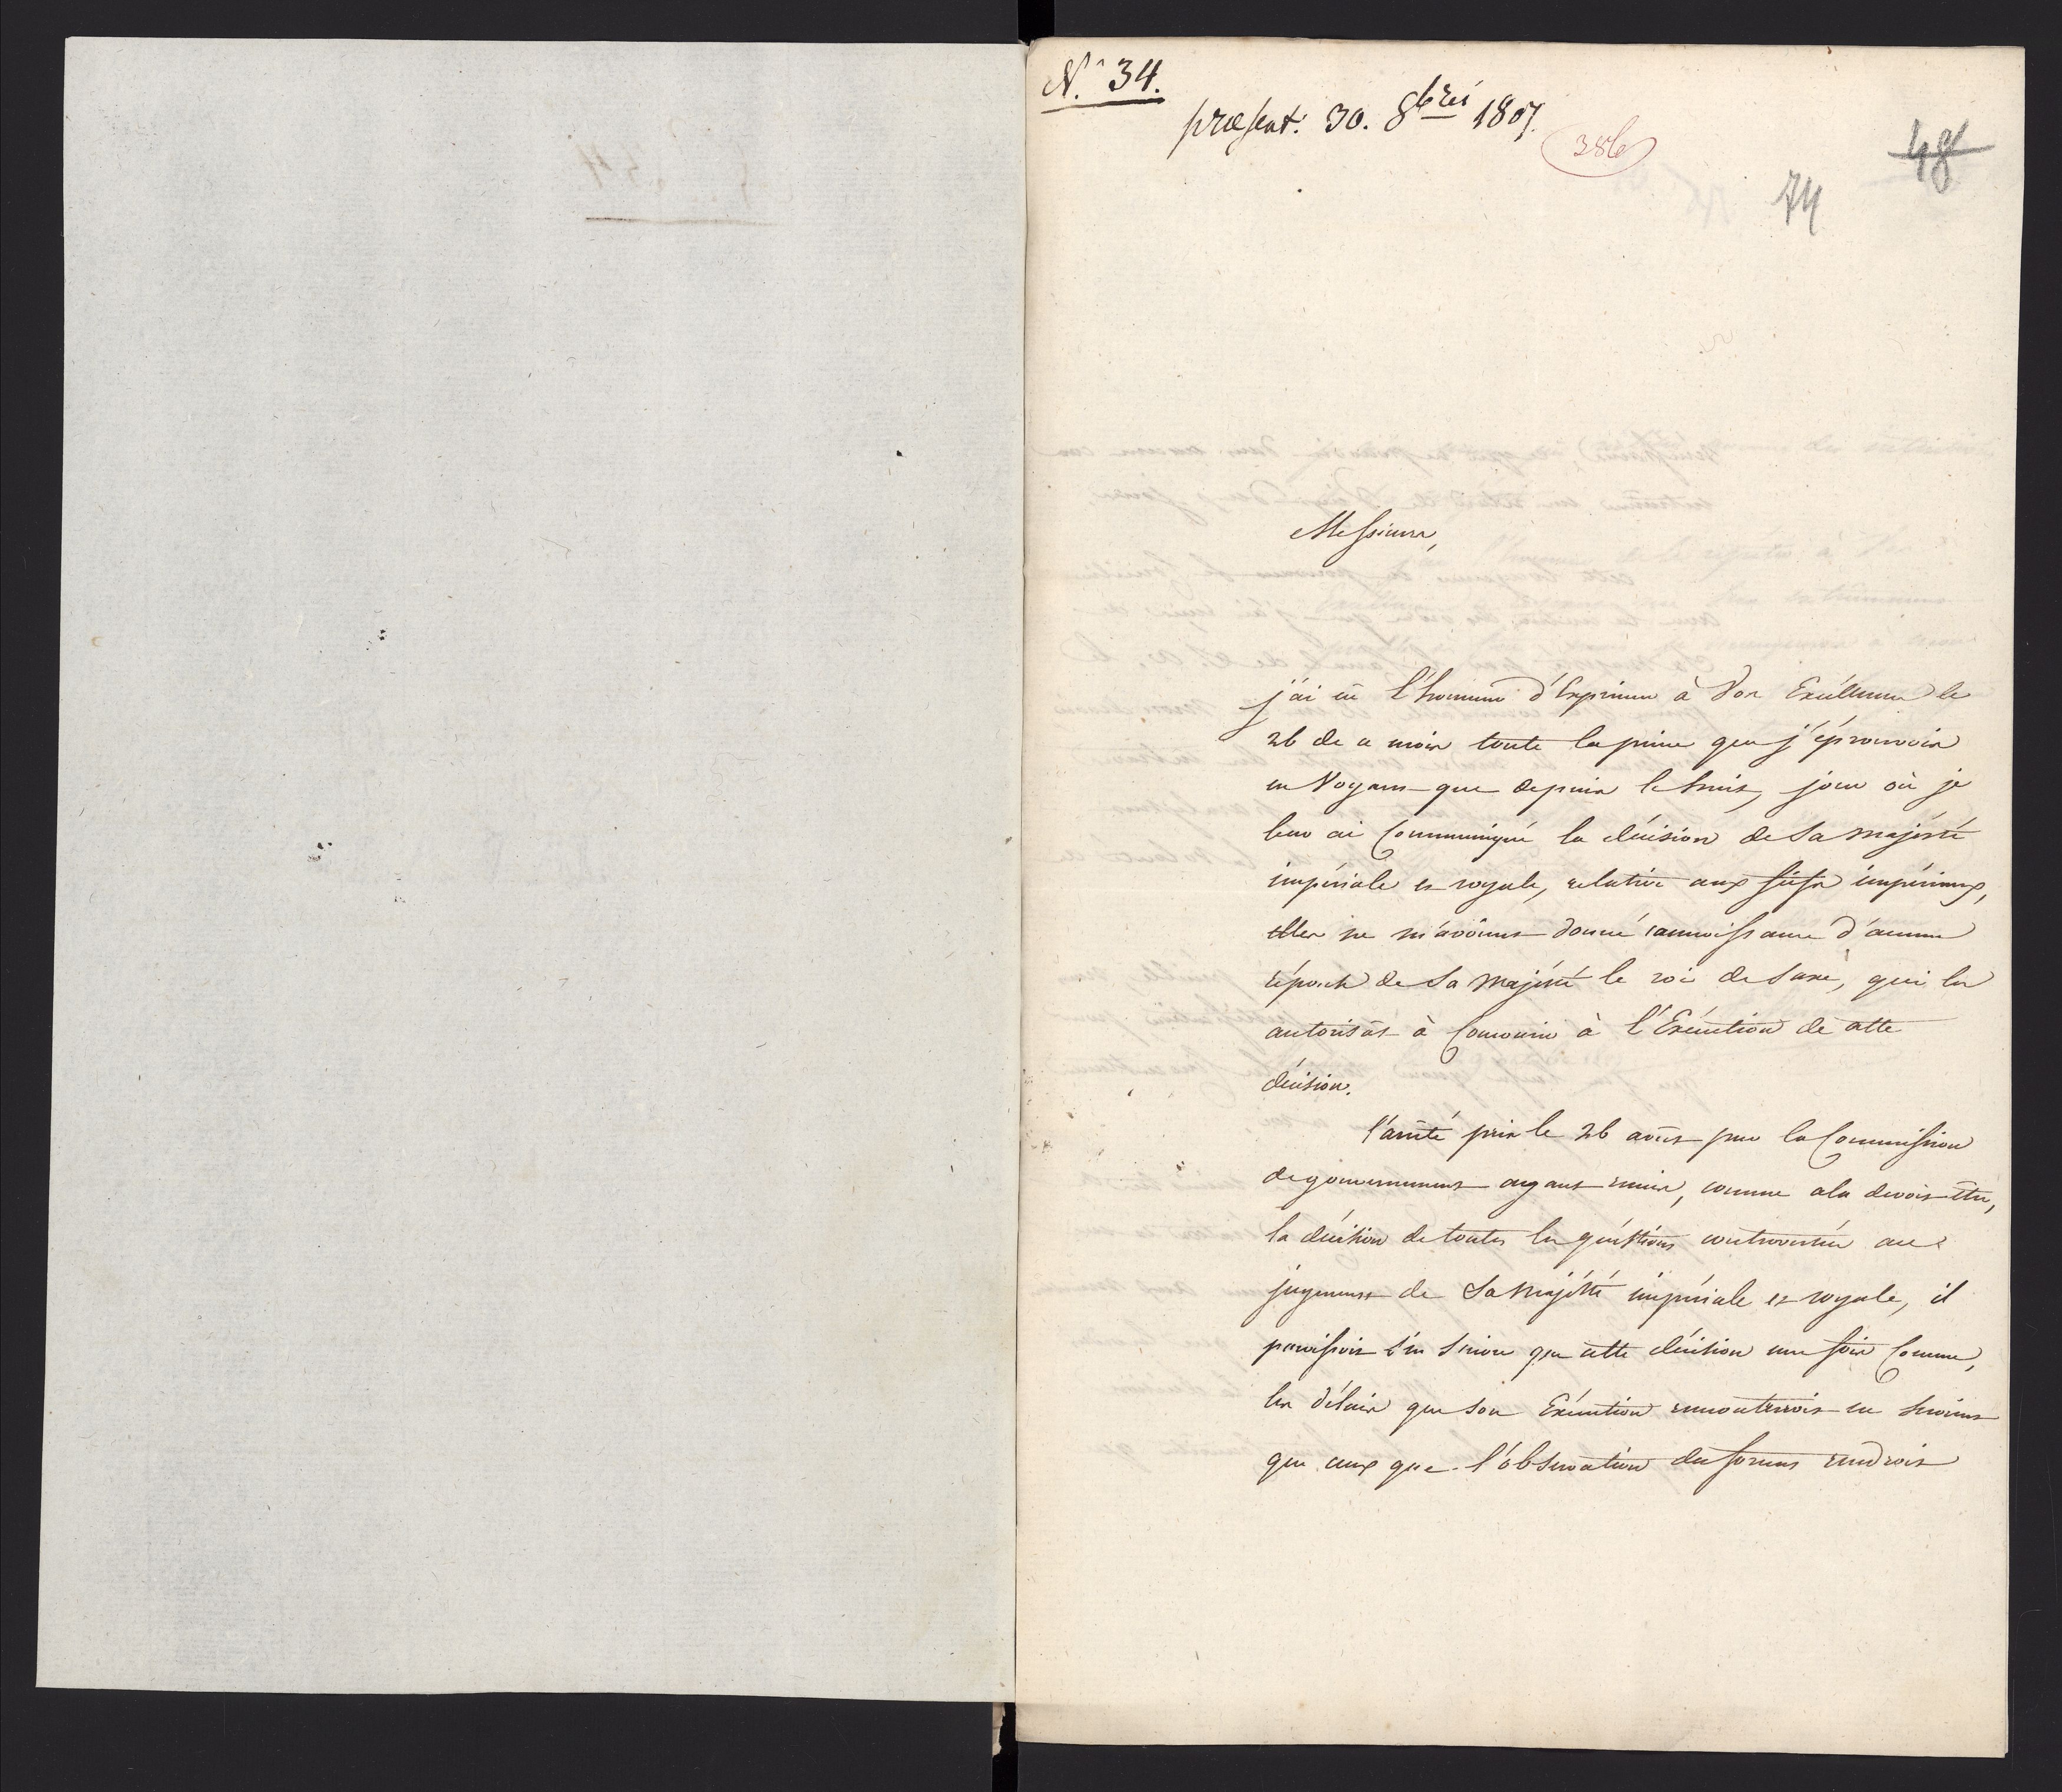 N.° 34.
præsent: 30. 8bris 1807.
386
48
74
Messieurs,
j'ai eü l'honneur d'Exprimer à Vos Excéllences le
26 de ce mois toute la peine que j'éprouvois
en Voyant que depuis le huit, jour où je
leur ai Communiqué la décision de Sa Majésté
impériale et royale, relative aux fiefs impériaux,
elles ne m'avoient donné connoissance d'aucune
réponse de Sa Majésté le roi de Saxe, qui les
autorisât à Concourir à l'Exécution de cette
décision.
l'arrêté pris le 26 août par la Commission
de gouvernement ayant remis, comme cela devoit être,
la décision de toutes les quéstions controversées au
jugement de Sa Majésté impériale et royale, il
paroissoit s'en suivre que cette décision une fois Connue,
les délais que son Exécution rencontreroit ne seroient
que ceux que l'observation des formes rendroit